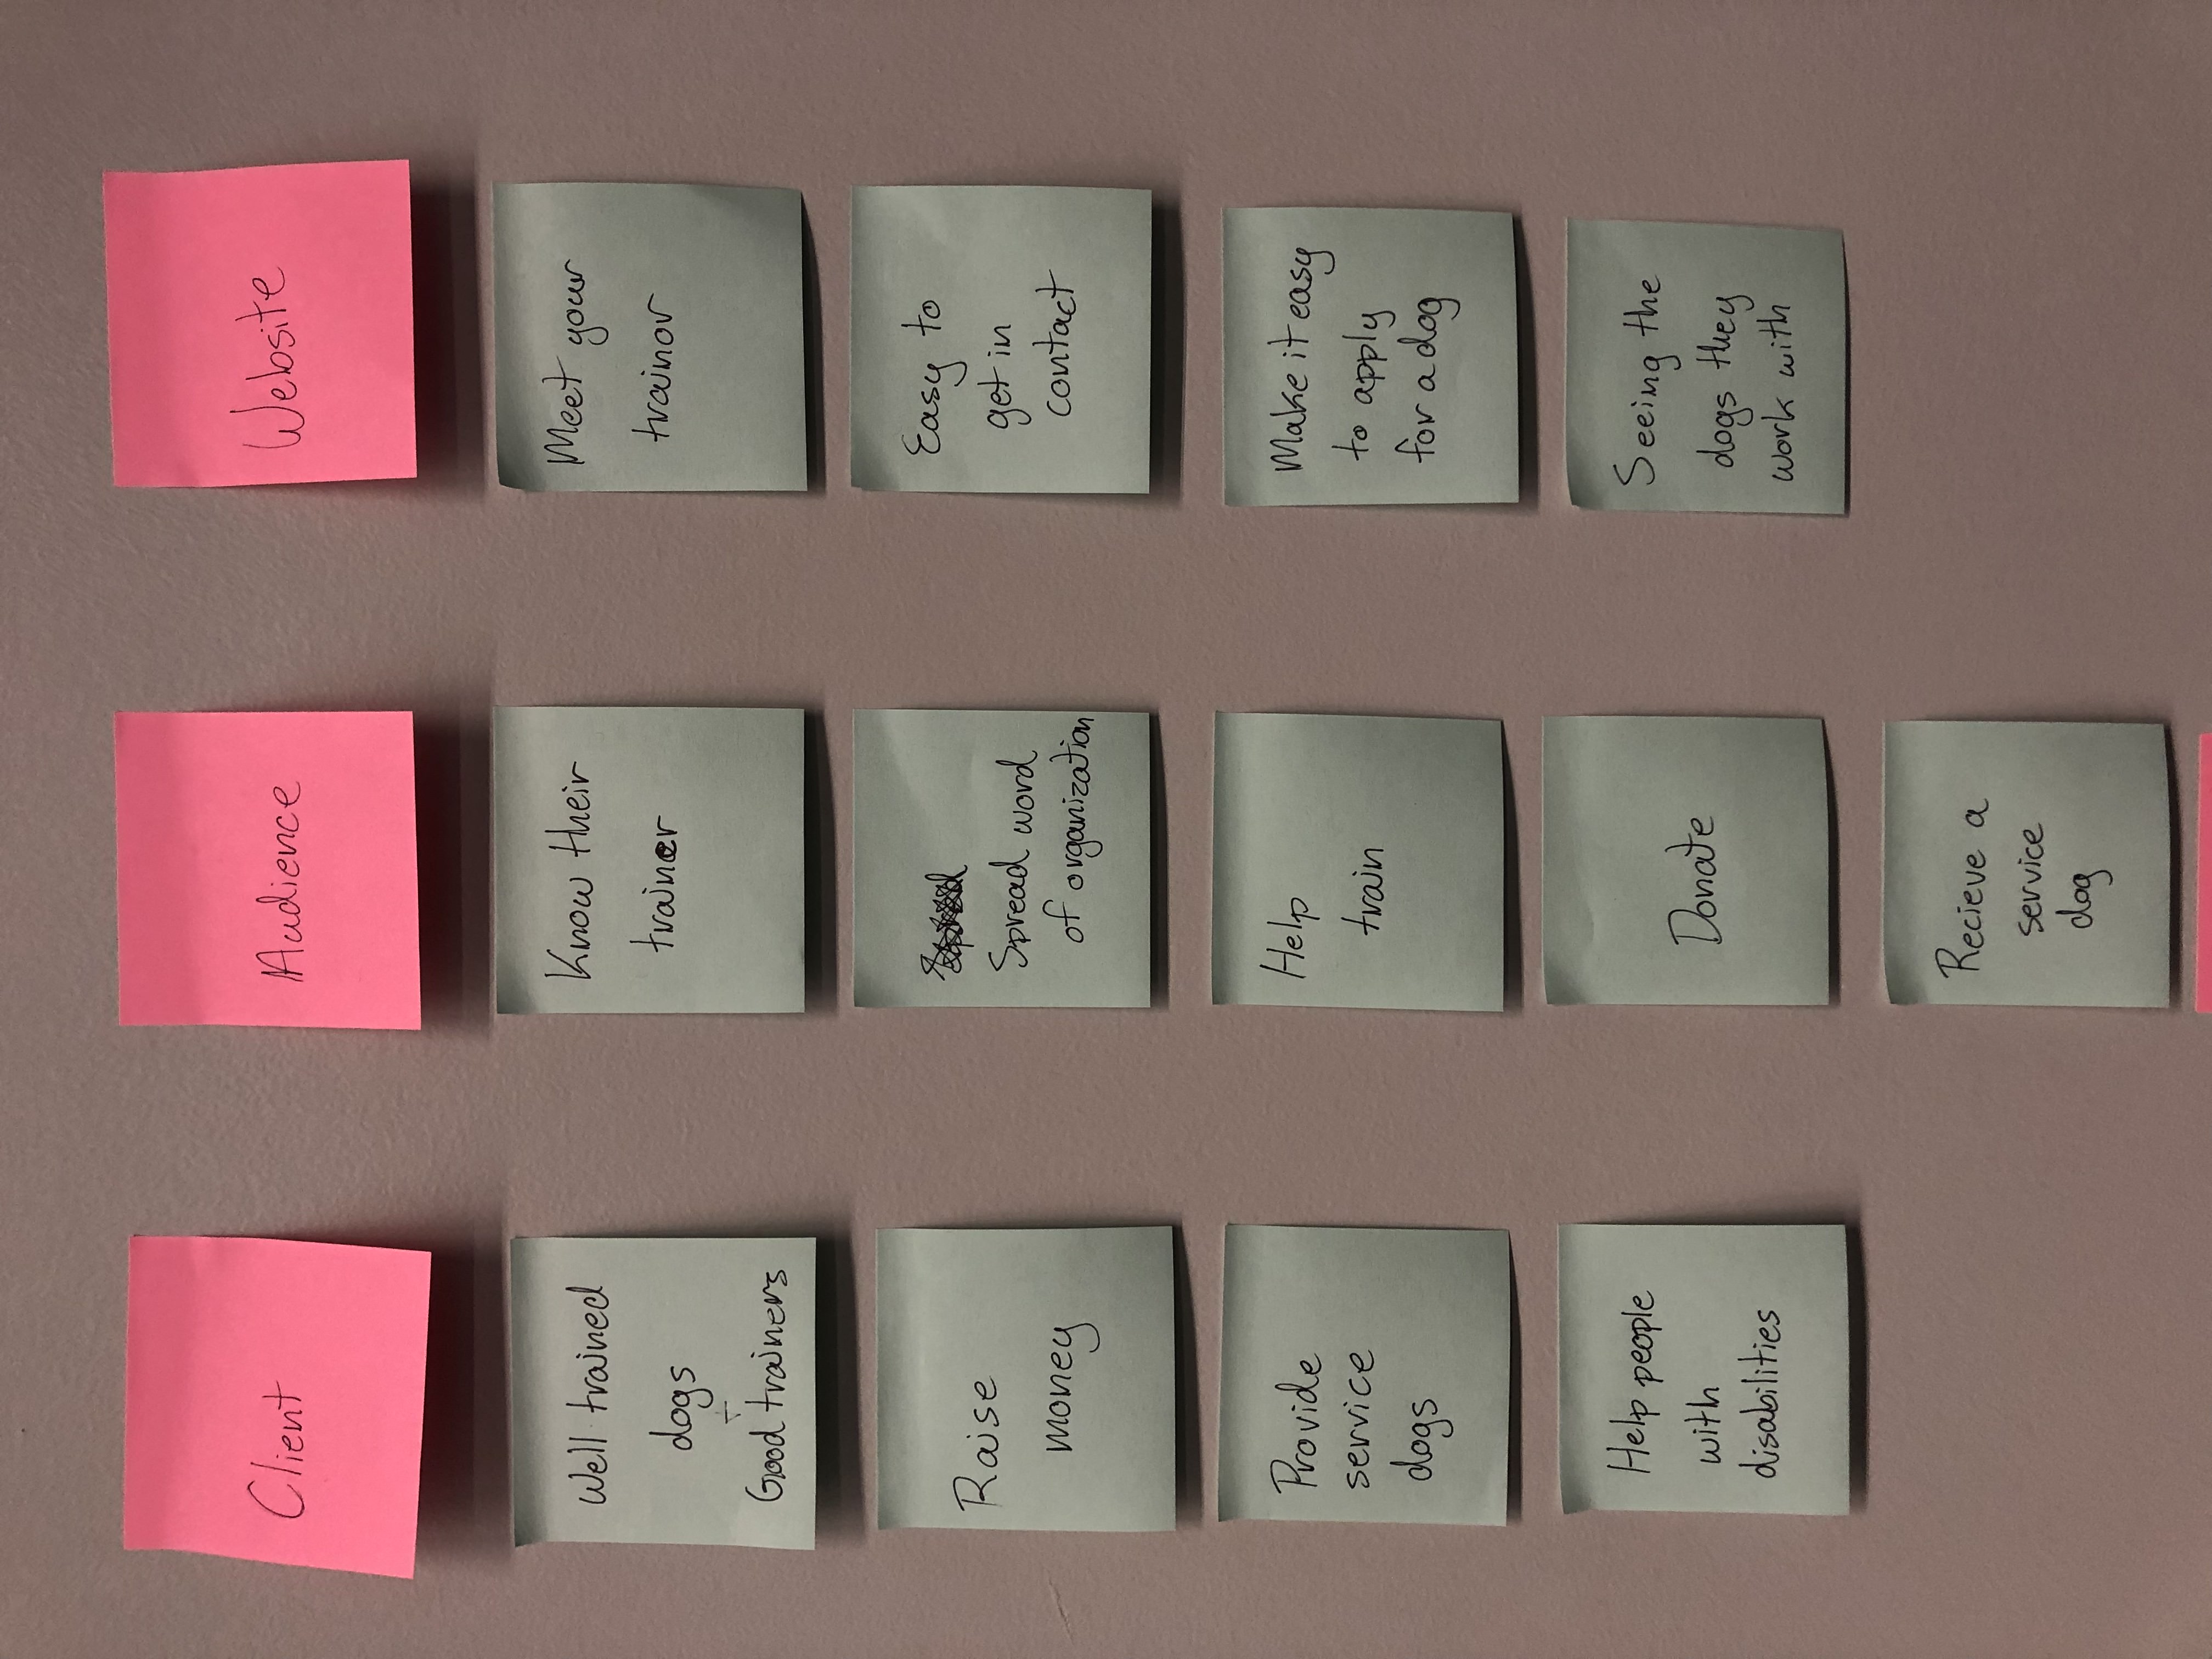 Client
Well trained
dogs
+
Good trainers
Raise
money
Provide
service
dogs
Help people
with
disabilities
Audience
Know their
trainer
Spread word
of organization
Help
train
Donate
Recieve a
service
dog
Website
Meet your
trainor
Easy to
get in
contact
Make it easy
to apply
for a dog
Seeing the
dogs they
work with